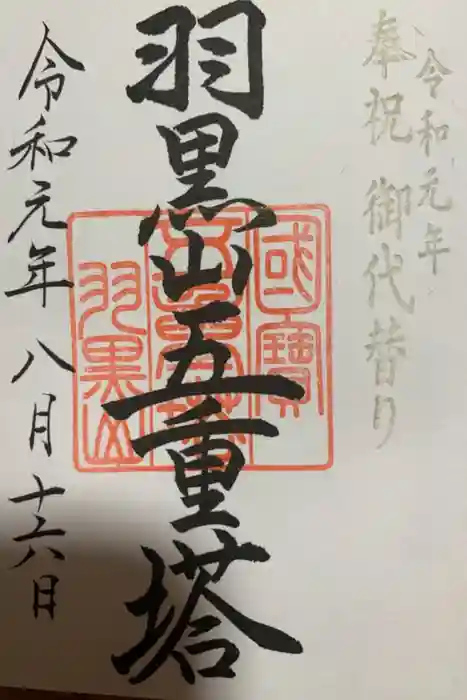 令和元年
奉祝 御代替り
羽黒山五重塔
國寶
五重塔
羽黒山
令和元年 八月十六日